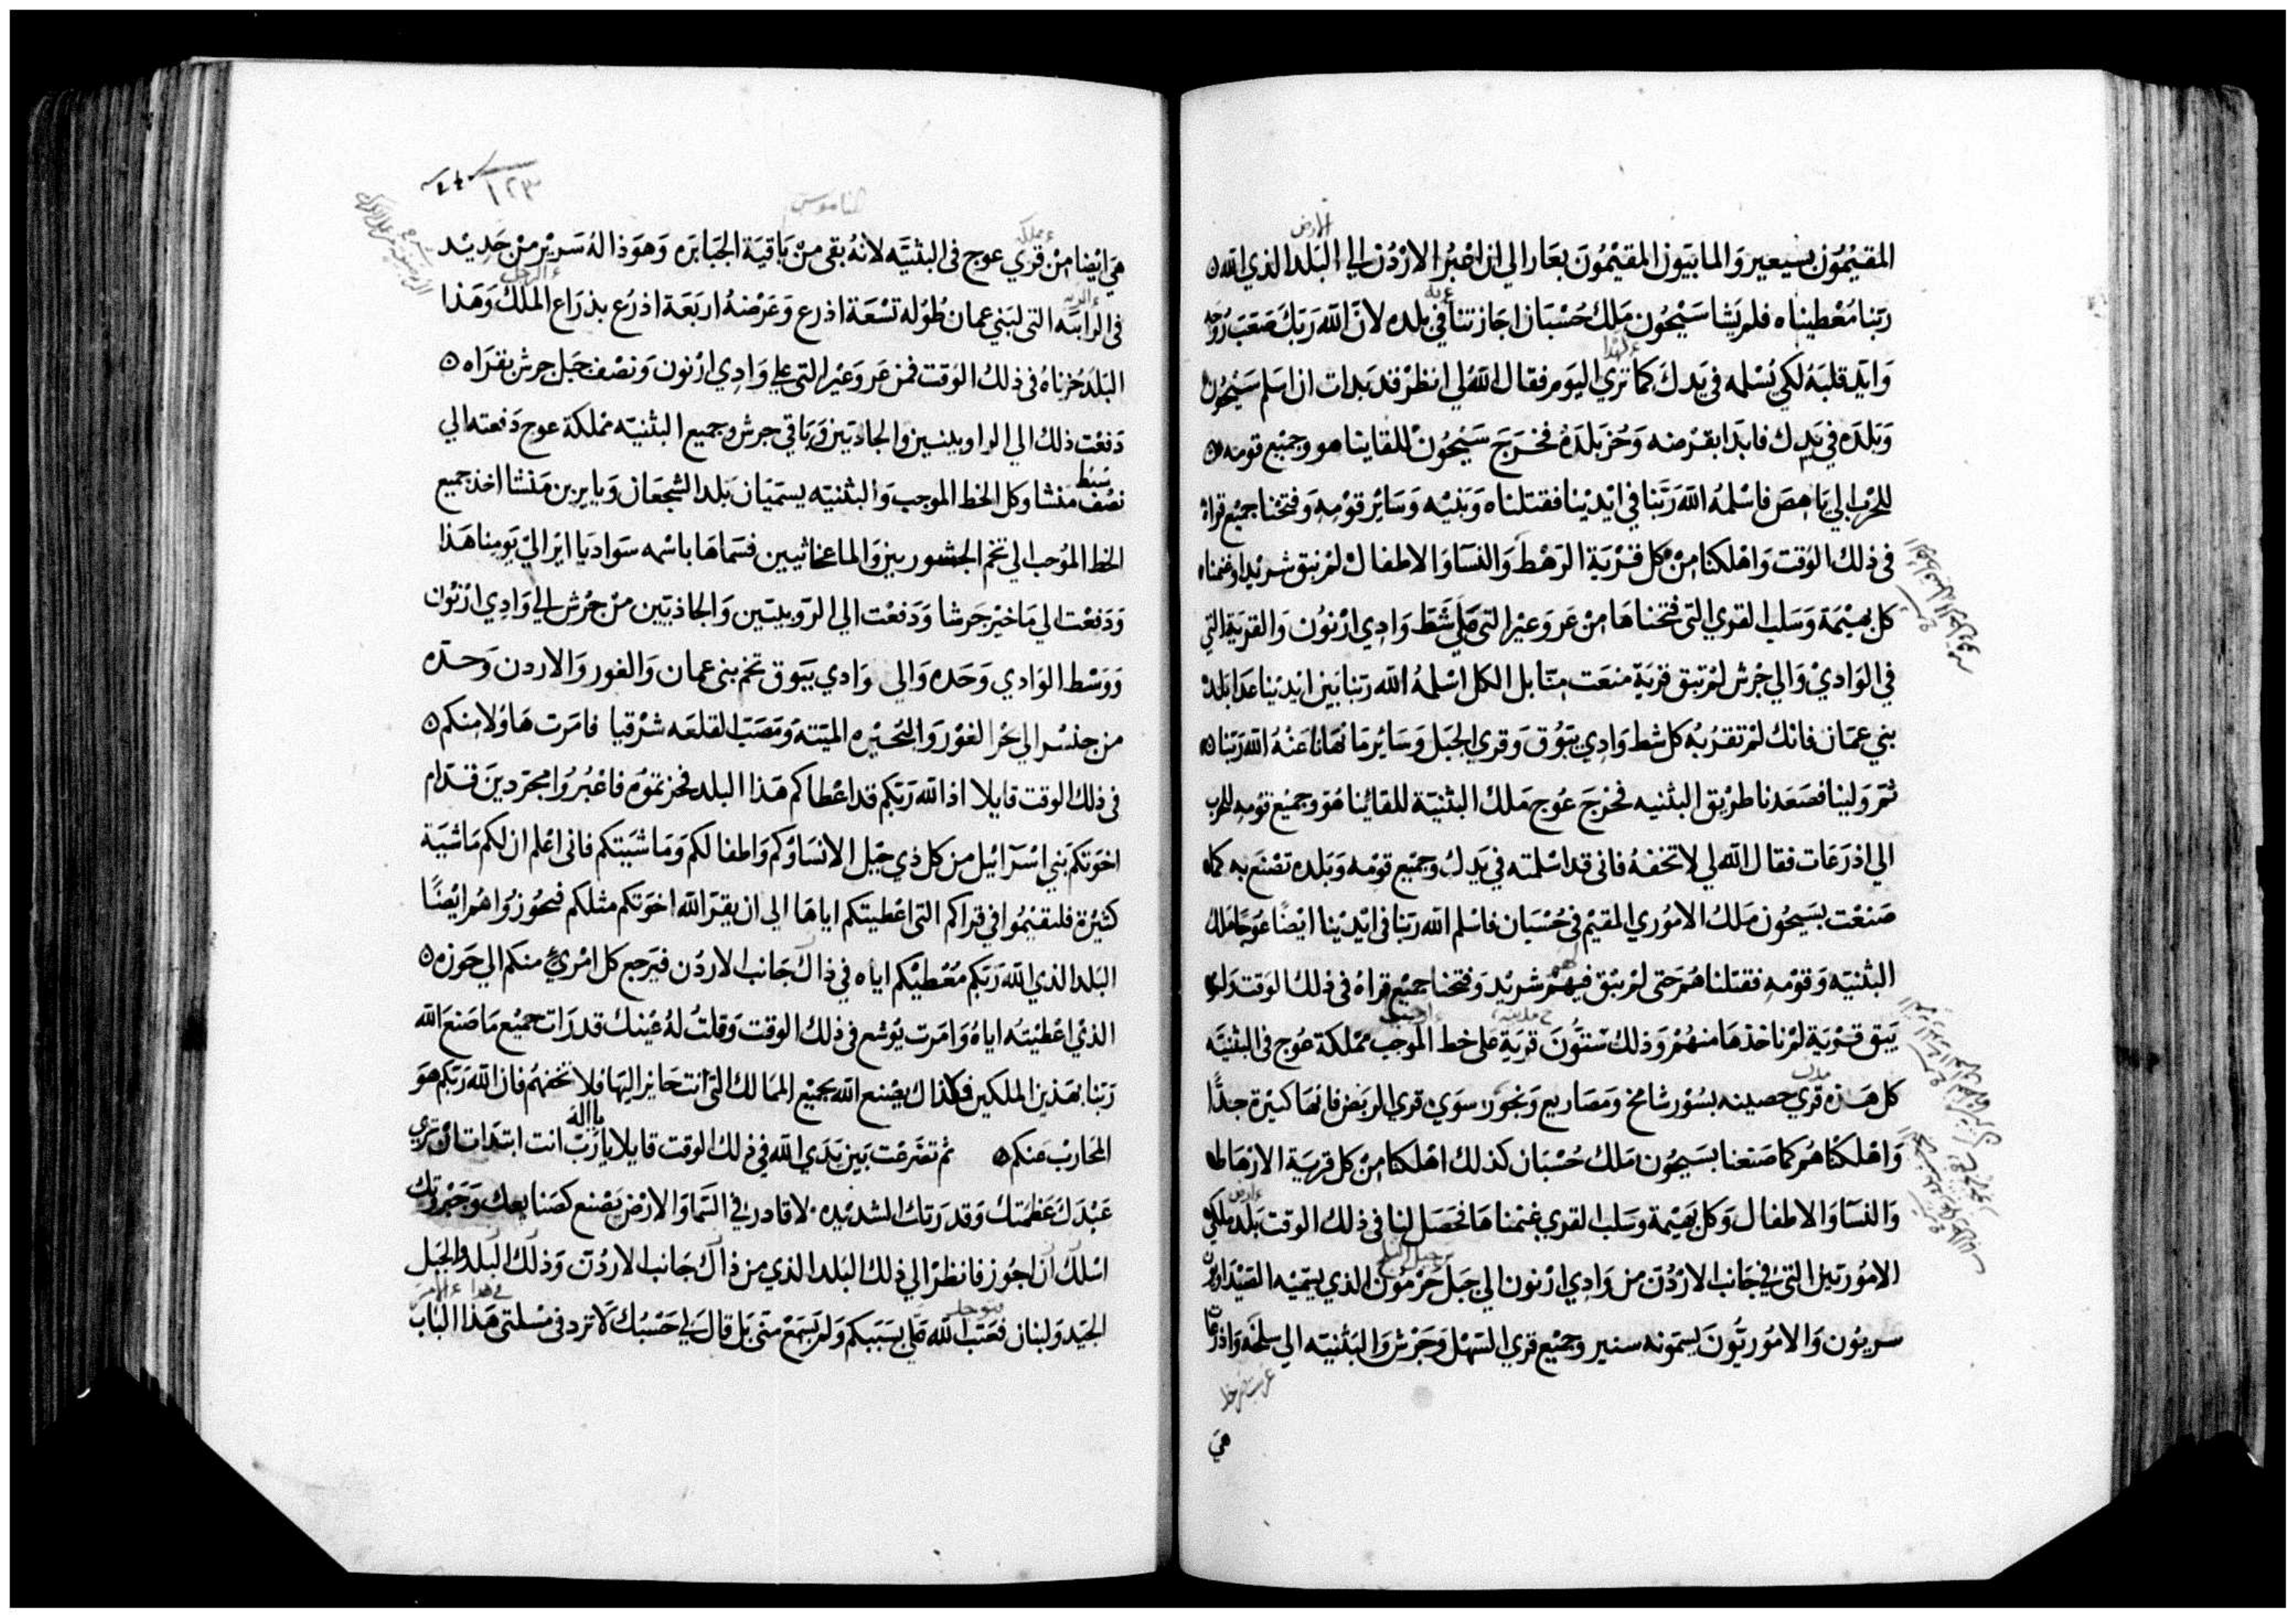 المقيمون بسيعير والمابيون المقيمون بعار الي ان اعبر الاردن الي البلد الذي الله
ربنا معطيناه فلم يشا سيحون ملك حسبان اجازتنا في بلده لان الله ربك صعب روحه
وايد قلبه لكي نسلمه في يدك كما تري اليوم فقال الله لي انظر قد بدات ان اسلم سيحون
وبلده في يدك فابدا بقرضه وحز بلده فخرج سيحون للقاينا هو وجميع قومه
للحرب الي ياهص فاسلمه الله ربنا في ايدينا فقتلناه وبنيه وساير قومه وفتحنا جميع قراه
في ذلك الوقت واهلكنا من كل قرية الرهط والنسا والاطفال لم نبق شريدا وغنمنا
كل بهيمة وسلب القري التي فتحناها من عروعير التي علي شط وادي ارنون والقرية التي
في الوادي والي جرش لم تبق قرية منعت منا بل الكل اسلمه الله ربنا بين ايدينا عدا بلد
بني عمان فانك لم تقربه كل شط وادي يبوق وقري الجبل وساير ما نهانا عنه الله ربنا
ثم ولينا فصعدنا طريق البثنيه فخرج عوج ملك البثنية للقائنا هو وجميع قومه للحرب
الي اذرعات فقال الله لي لا تخفه فاني قد اسلمته في يدك وجميع قومه وبلده تصنع به كما
صنعت بسيحون ملك الاموري المقيم في حسبان فاسلم الله ربنا في ايدينا ايضا عوجا ملك
البثنيه وقومه فقتلناهم حتى لم يبق فيهم شريد وفتحنا جميع قراه في ذلك الوقت ولم
يبق قرية لم ناخذها منهم وذلك ستون قرية على خط الموجب مملكة عوج في البثنيه
كل هذه قري حصينه بسور شامخ ومصاريع ونجور سوي قري الربض فانها كثيرة جدا
واهلكناهم كما صنعنا بسيحون ملك حسبان كذلك اهلكنا من كل قرية الارهاط
والنسا والاطفال وكل بهيمة وسلب القري غنمناها فحصل لنا في ذلك الوقت بلد ملكي
الاموريين التي في جانب الاردن من وادي ارنون الي جبل حرمون الذي يسميه الصيدانيون
سريون والاموريون يسمونه سنير وجميع قري السهل وجرش والبثنيه الي سلخه واذرعات
هي
الناموس
١٢٣
هي ايضا من قري عوج في البثنيه لانه بقى من باقية الجبابره وهوذا له سرير من حديد
في الرابيه التي لبني عمان طوله تسعة اذرع وعرضه اربعة اذرع بذراع الملك وهذا
البلد حزناه في ذلك الوقت فمن عروعير التي علي وادي ارنون ونصف جبل جرش بقراه
دفعت ذلك الي الراوبينين والجاديين وباقي جرش وجميع البثنيه مملكة عوج دفعته الي
نصف سبط منشا وكل الخط الموجب والبثنيه يسميان بلد الشجعان ويايرين منشا اخذ جميع
الخط الموجب الي تخم الجشوريين والماعخاثيين فسماها باسمه سواد يا اير الي يومنا هذا
ودفعت الي ماخير جرشا ودفعت الي الروبيلين والجاذيين من جرش الي وادي ارنون
ووسط الوادي وحده والى وادي يبوق تخم بني عمان والغور والاردن وحده
من جنسر الي بحر الغور والبحيره الميته ومصب القلعه شرقيا فامرت هاولا منكم
في ذلك الوقت قايلا اذ الله ربكم قد اعطاكم هذا البلد فحزتموه فاعبروا مجردين قدام
اخوتكم بني اسرائيل من كل ذي جيل الا نساؤكم واطفالكم وماشيتكم فاني اعلم ان لكم ماشية
كثيرة فليقيموا في قراكم التي اعطيتكم اياها الي ان يقر الله اخوتكم مثلكم فيحوزوا هم ايضا
البلد الذي الله ربكم معطيكم اياه في ذاك جانب الاردن فيرجع كل امرئ منكم الي حوزه
الذي اعطيته اياه وامرت يوشع في ذلك الوقت وقلت له عينك قد رات جميع ما صنع الله
ربنا بهذين الملكين فكذاك يصنع الله بجميع الممالك التي انت جايز اليها فلا تخفهم فان الله ربكم هو
المحارب عنكم ثم تضرعت بين يدي الله في ذلك الوقت قايلا يا رب انت ابتدات ان تري
عبدك عظمتك وقدرتك الشديده لا قادر في السما والارض يصنع كصنايعك وجبروتك
اسلك ان اجوز فانظر الي ذلك البلد الذي من ذاك جانب الاردن وذلك البلد والجبل
الجيد ولبنان فعتب الله علي بسببكم ولم يسمع مني بل قال لي حسبك لا تزد في مسلتي هذا الباب